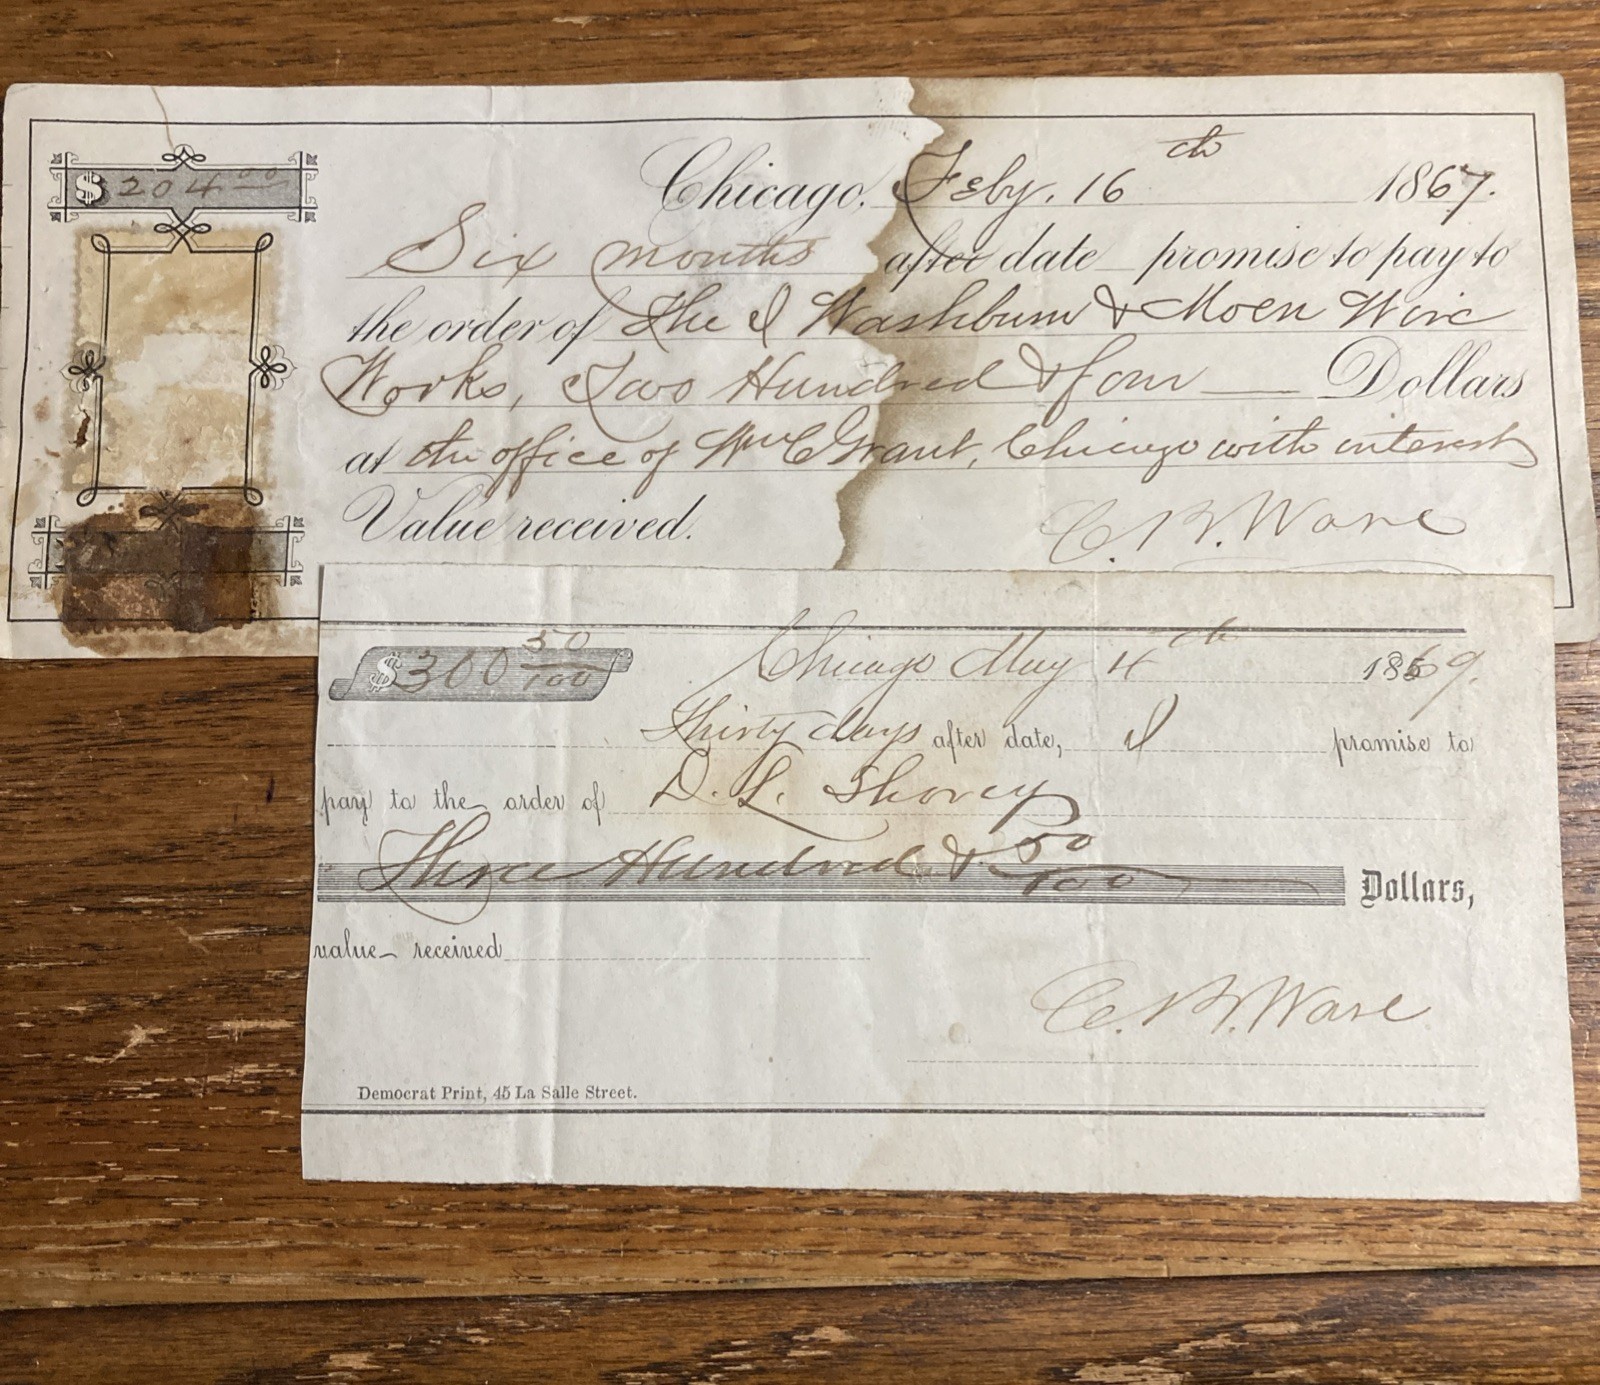 $ 204 00
Chicago, Feby. 16th 1867.
Six months after date promise to pay to
the order of The I Washburn & Moen Wire
Works, Two Hundred & four Dollars
at the office of Wm C Grant, Chicago with interest
Value received.
C. B. Ware
$ 300 50/100
Chicago May 4th 1869.
Thirty days after date, I promise to
pay to the order of D. L. Shorey
Three Hundred & 50/100 Dollars,
value received
C. B. Ware
Democrat Print, 45 La Salle Street.